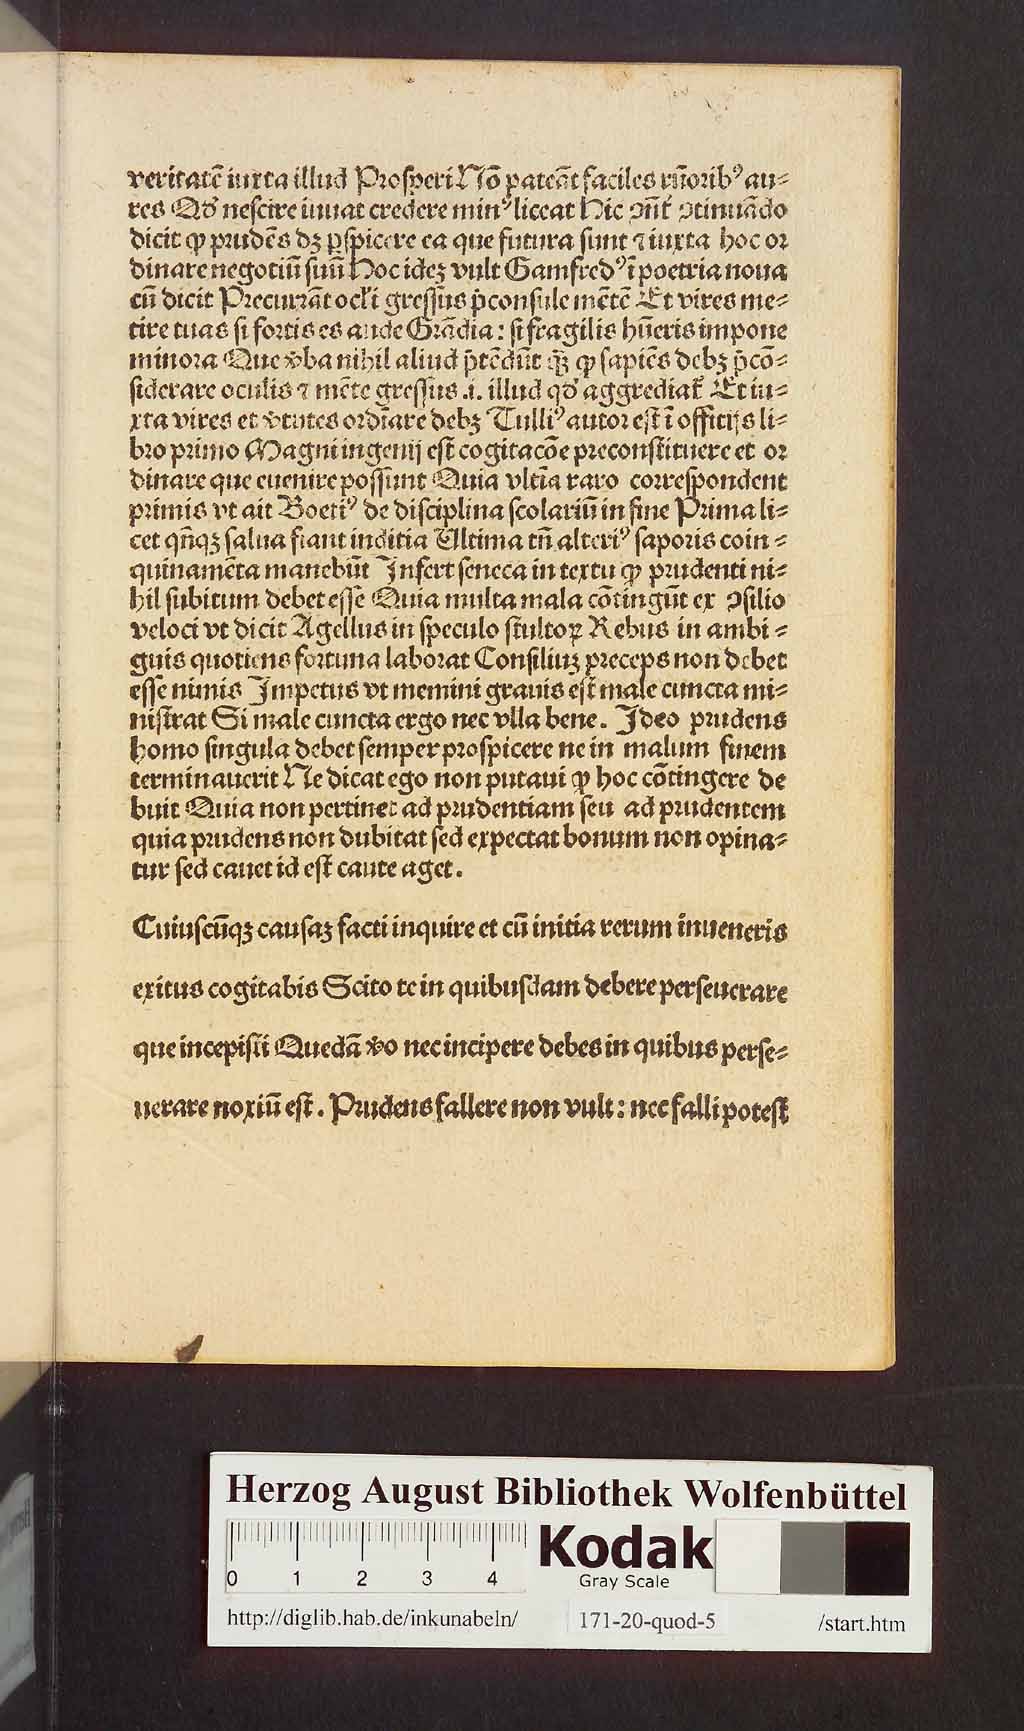 veritatē iuxta illud Prosperi Nō pateāt faciles rūoribꝰ au⸗
res Qd' nescire iuuat credere minꝰ liceat Hic ↄ̄ñt ↄtinuādo
dicit ꝙ prudēs dꝫ ꝑspicere ea que futura sunt ⁊ iuxta hoc or
dinare negotiū suū Hoc ideꝫ vult Gamfredꝰ ī poetria noua
cū dicit Precurrāt ocl'i gressus p̄consule mētē Et vires me⸗
tire tuas si fortis es aude Grādia: si fragilis hūeris impone
minora Que v̓ba nihil aliud p̄tēdūt q̄ꝫ ꝙ sapiēs debꝫ p̄cō⸗
siderare oculis ⁊ mēte gressus .i. illud qd' aggrediat᷑ Et iu⸗
xta vires et v̓tutes ordīare debꝫ Tulliꝰ autor est ī officijs li⸗
bro primo Magni ingenij est cogitacōe preconstituere et or
dinare que euenire possunt Quia vltīa raro correspondent
primis vt ait Boetiꝰ de disciplina scolariū in fine Prima li⸗
cet qn̄qꝫ salua fiant inditia Ultima tn̄ alteriꝰ saporis coin⸗
quinamēta manebūt Infert seneca in textu ꝙ prudenti ni⸗
hil subitum debet esse Quia multa mala cōtingūt ex ↄsilio
veloci vt dicit Agellus in speculo stultoꝝ Rebus in ambi⸗
guis quotiens fortuna laborat Consiliuꝫ preceps non debet
esse nimis Impetus vt memini grauis est male cuncta mi⸗
nistrat Si male cuncta ergo nec vlla bene. Ideo prudens
homo singula debet semper prospicere ne in malum finem
terminauerit Ne dicat ego non putaui ꝙ hoc cōtingere de
buit Quia non pertinet ad prudentiam seu ad prudentem
quia prudens non dubitat sed expectat bonum non opina⸗
tur sed cauet id est caute aget.
Cuiuscūqꝫ causaꝫ facti inquire et cū initia rerum inueneris
exitus cogitabis Scito te in quibusdam debere perseuerare
que incepisti Quedā v̓o nec incipere debes in quibus perse⸗
uerare noxiū est. Prudens fallere non vult: nec falli potest
Herzog August Bibliothek Wolfenbüttel
0 1 2 3 4
Kodak
Gray Scale
http://diglib.hab.de/inkunabeln/ 171-20-quod-5 /start.htm